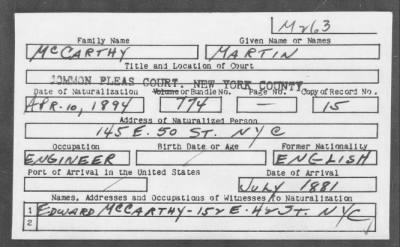 M263
Family Name Given Name or Names
McCARTHY MARTIN
Title and Location of Court
COMMON PLEAS COURT. NEW YORK COUNTY
Date of Naturalization Volume or Bundle No. Page No. Copy of Record No.
APR. 10, 1894 774 — 15
Address of Naturalized Person
145 E. 50 ST. NYC
Occupation Birth Date or Age Former Nationality
ENGINEER ENGLISH
Port of Arrival in the United States Date of Arrival
JULY 1881
Names, Addresses and Occupations of Witnesses To Naturalization
1 EDWARD McCARTHY - 152 E. ST. NYC
2